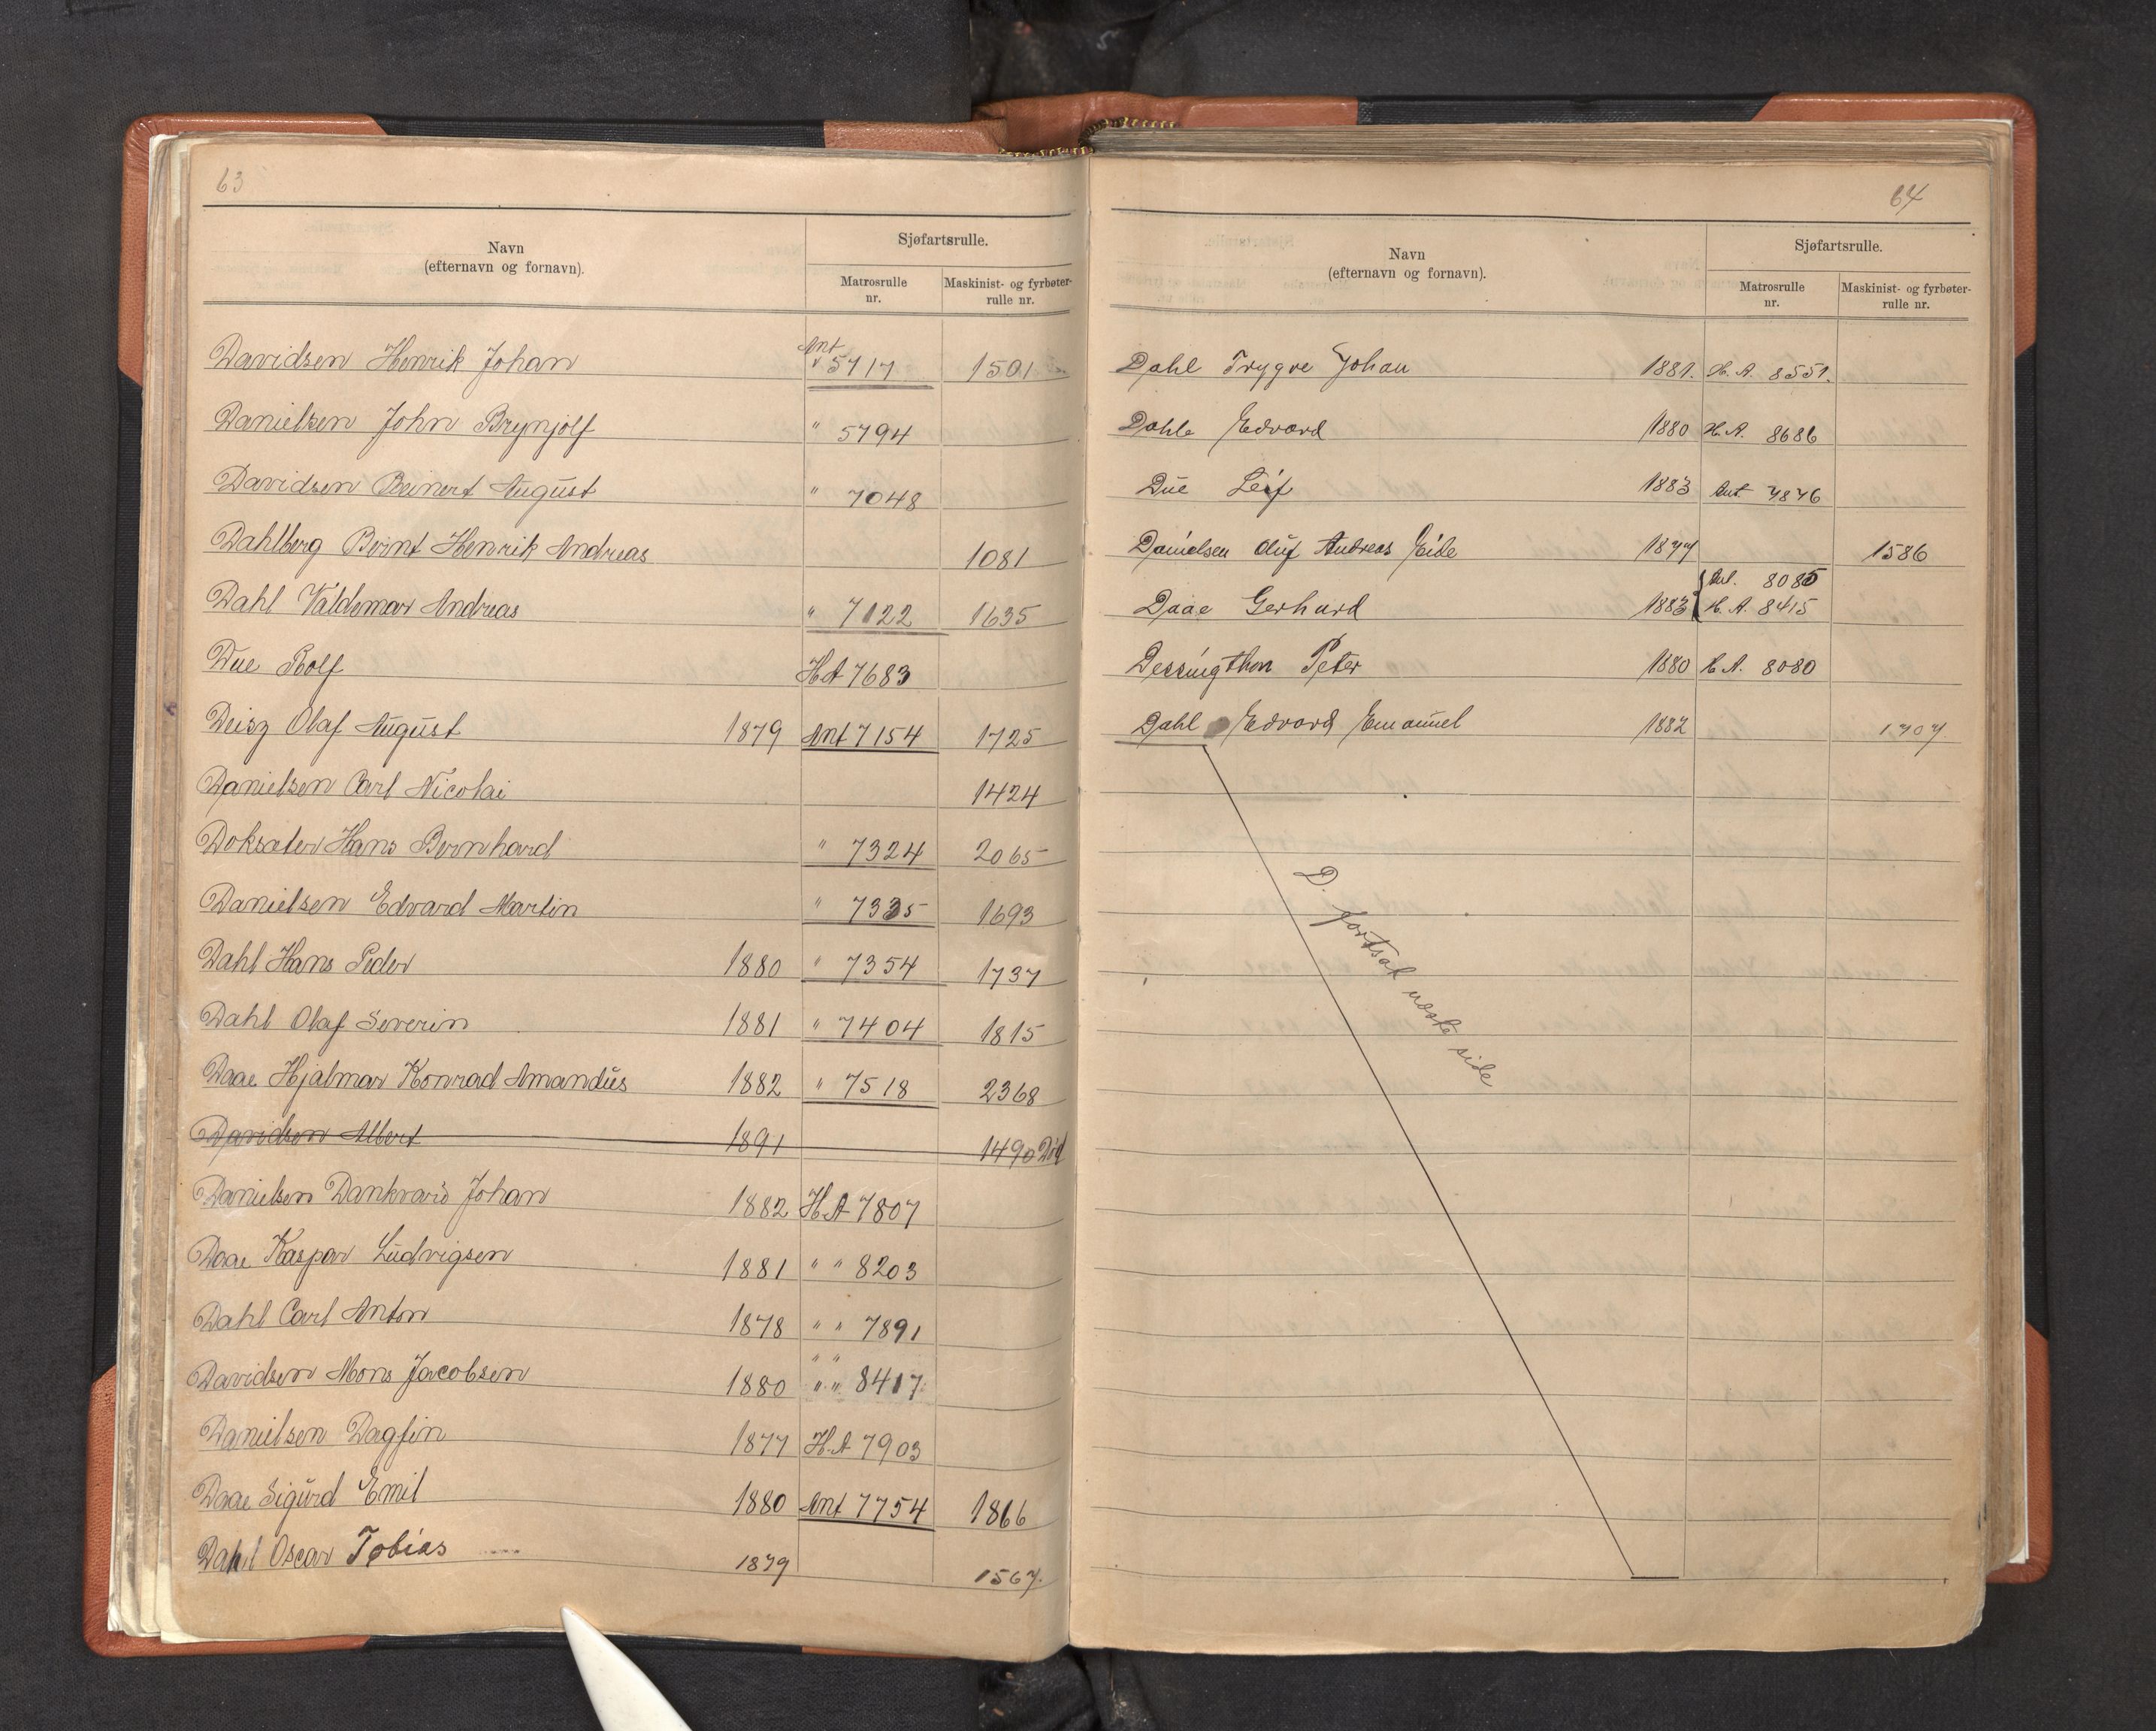 63
Navn
(efternavn og fornavn).
Sjøfartsrulle.
Matrosrulle
nr.
Maskinist- og fyrbøter-
rulle nr.
Davidsen Henrik Johan Ant 5717 1501
Danielsen John Brynjolf " 5794
Davidsen Reinert August " 7048
Dahlberg Bernt Henrik Andreas 1081
Dahl Valdemar Andreas " 7122 1635
Due Rolf HA 7683
Deisz Olaf August 1879 Ant 7154 1725
Danielsen Carl Nicolai 1424
Doksater Hans Bernhard " 7324 2065
Danielsen Edvard Martin " 7335 1693
Dahl Hans Peder 1880 " 7354 1737
Dahl Olaf Severin 1881 " 7404 1815
Daae Hjalmar Konrad Amandus 1882 " 7518 2368
Davidsen Albert 1891 1490 Død
Danielsen Dankvard Johan 1882 H.A 7807
Daae Kaspar Ludvigsen 1881 " " 8203
Dahl Carl Anton 1878 " " 7891
Davidsen Mons Jacobsen 1880 " " 8417
Danielsen Dagfin 1877 H.A 7903
Daae Sigurd Emil 1880 Ant 7754 1866
Dahl Oscar Tobias 1879 1567.
64
Navn
(efternavn og fornavn).
Sjøfartsrulle.
Matrosrulle
nr.
Maskinist- og fyrbøter-
rulle nr.
Dahl Trygve Johan 1881. H.A. 8551.
Dahle Edvard 1880 H.A. 8686
Due Leif 1883 Ant 7876
Danielsen Oluf Andreas Eide 1877 1586
Ant. 8085
Daae Gerhard 1883 H.A. 8415
Dessingthon Peter 1880 H.A. 8080
Dahl Edvard Emanuel 1882 1707
D. fortsat næste side